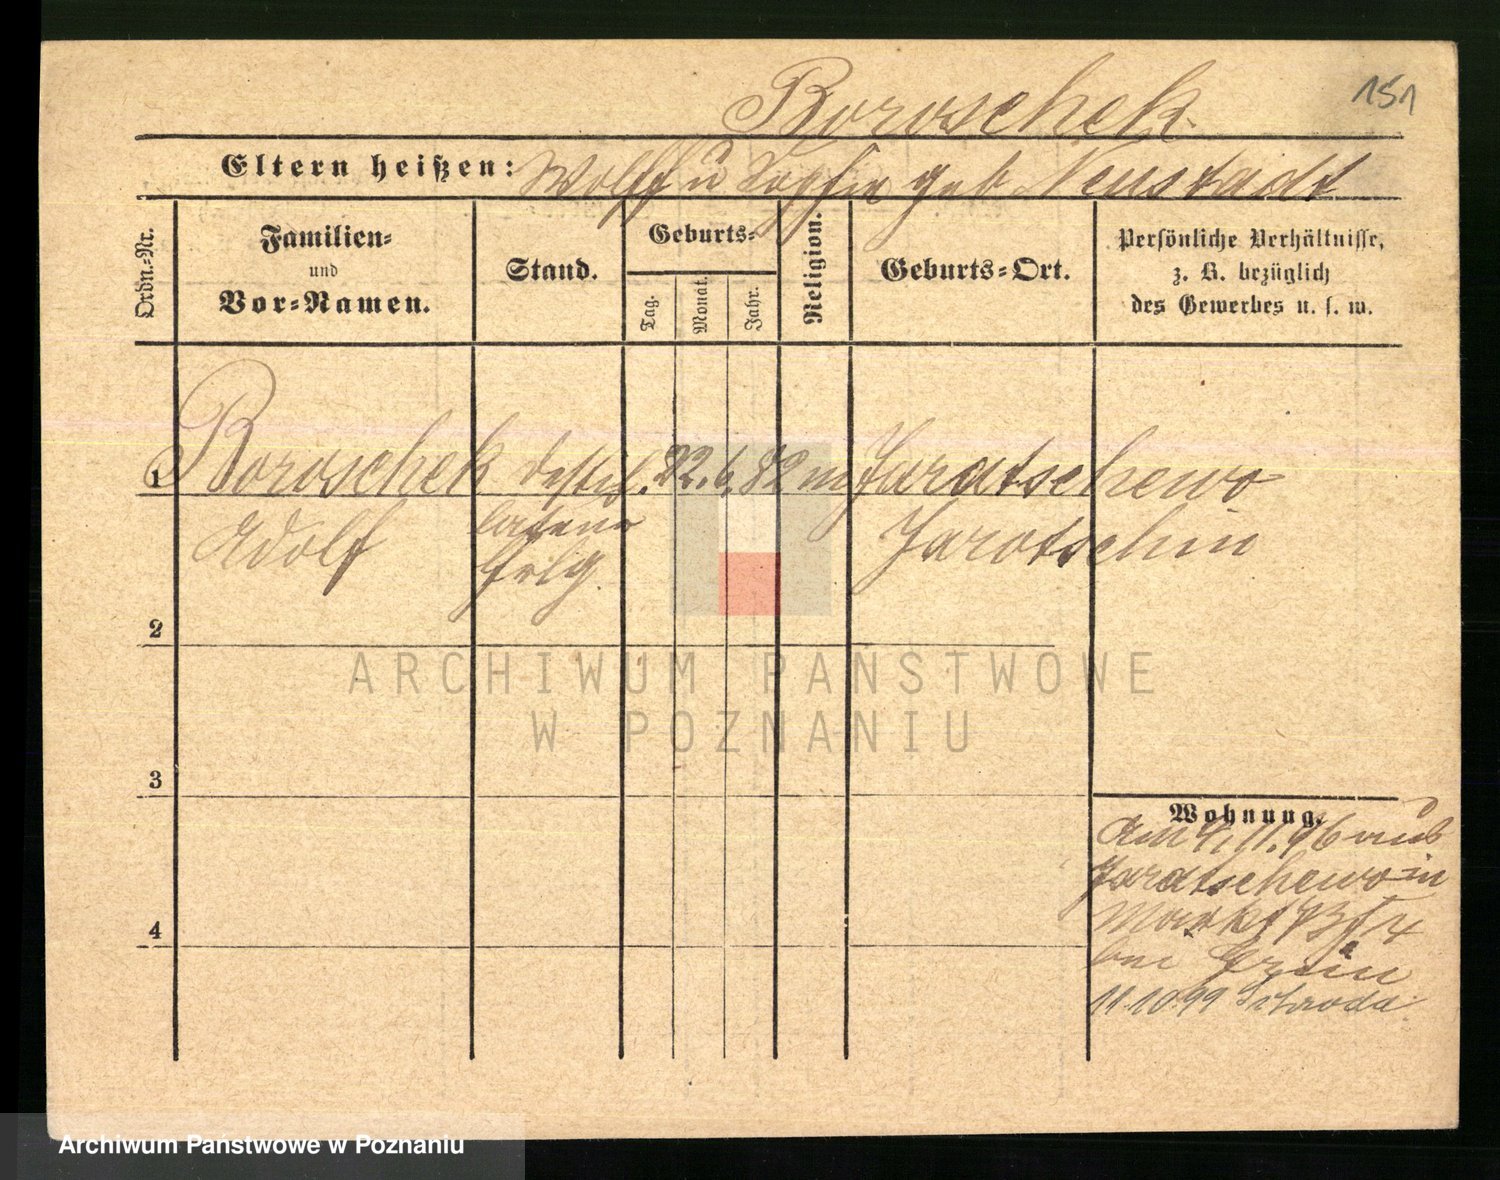 Boroschek
151
Eltern heißen: Wolff u Sophie geb Neustadt
Ordn.-Nr.
Familien-
und
Vor-Namen.
Stand.
Geburts-
Tag.
Monat.
Jahr.
Religion.
Geburts-Ort.
Persönliche Verhältnisse,
z. B. bezüglich
des Gewerbes u. s. w.
1 Boroschek Destil. 22. 6. 82 m Jaratschewo
Adolf
Jarotschin
2
3
4
Wohnung.
Am 4. 11. 96 aus
Jaratschewo in
Markt
bei Grün
11.10.99 Schroda
ARCHIWUM PAŃSTWOWE
W POZNANIU
Archiwum Państwowe w Poznaniu